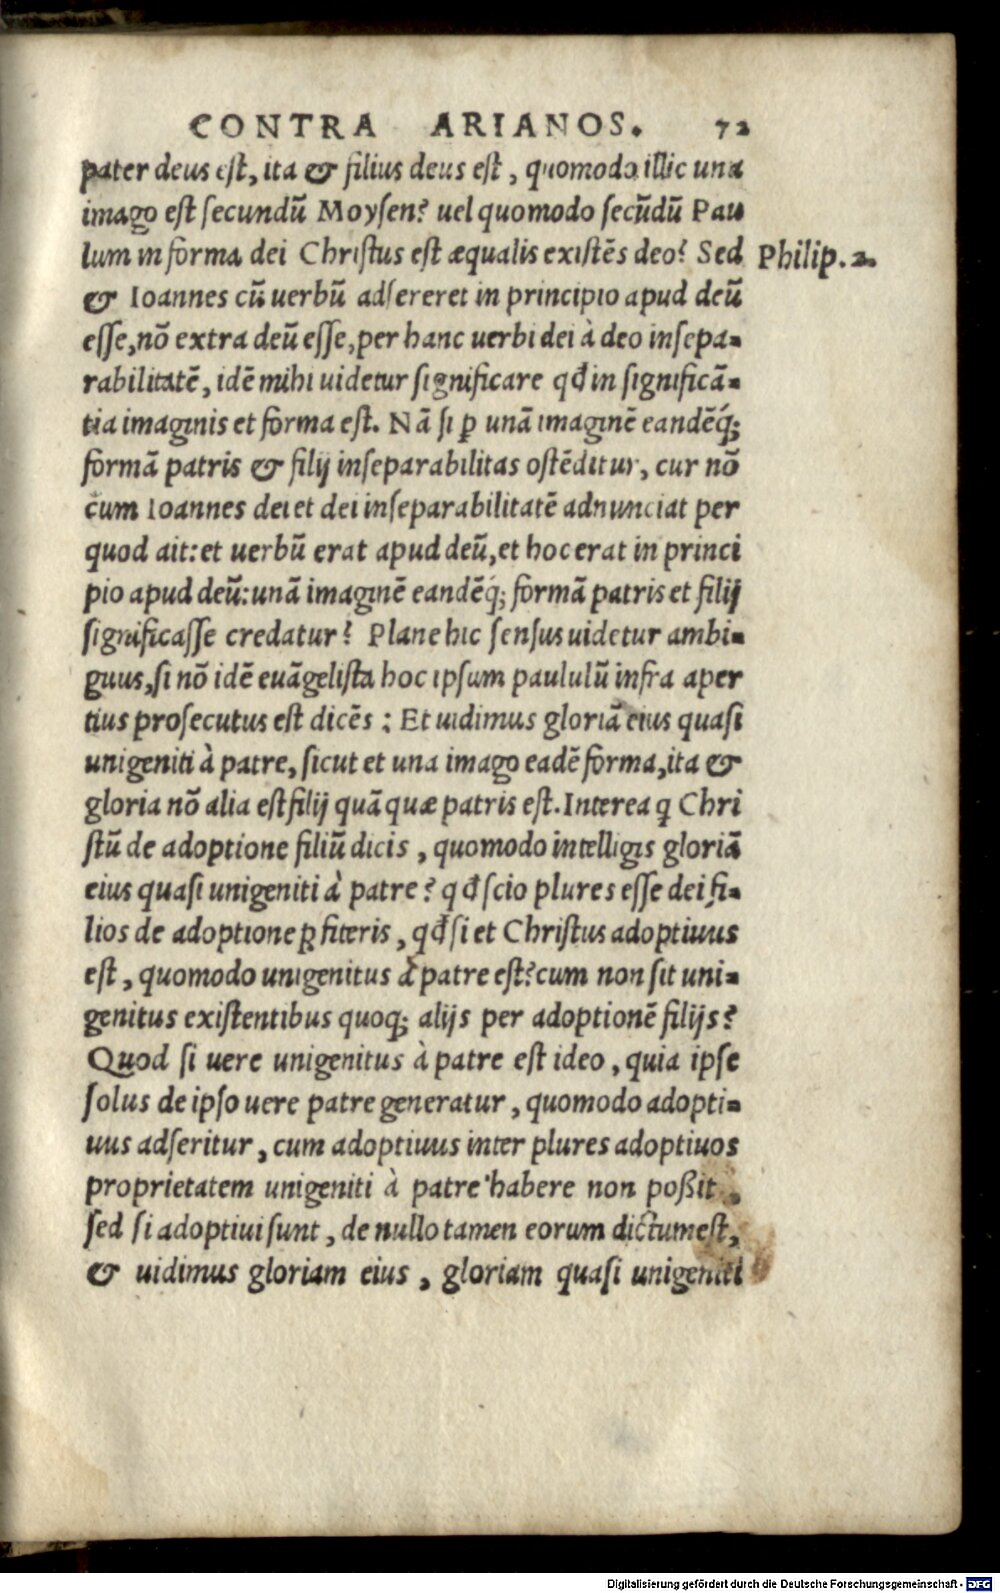 CONTRA ARIANOS. 72
pater deus est, ita & filius deus est, quomodo illic una
imago est secundũ Moysen? uel quomodo secũdũ Pau
lum in forma dei Christus est æqualis existẽs deo? Sed
Philip. 2.
& Ioannes cũ uerbũ adsereret in principio apud deũ
esse, nõ extra deũ esse, per hanc uerbi dei à deo insepa-
rabilitatẽ, idẽ mihi uidetur significare qđ in significã-
tia imaginis et forma est. Nã si ꝑ unã imaginẽ eandẽq́;
formã patris & filij inseparabilitas ostẽditur, cur nõ
cum Ioannes dei et dei inseparabilitatẽ adnunciat per
quod ait: et uerbũ erat apud deũ, et hoc erat in princi
pio apud deũ: unã imaginẽ eandẽq́; formã patris et filij
significasse credatur? Plane hic sensus uidetur ambi-
guus, si nõ idẽ euãgelista hoc ipsum paululũ infra aper
tius prosecutus est dicẽs: Et uidimus gloriã eius quasi
unigeniti à patre, sicut et una imago eadẽ forma, ita &
gloria nõ alia est filij quã quæ patris est. Interea q̃ Chri
stũ de adoptione filiũ dicis, quomodo intelligis gloriã
eius quasi unigeniti à patre? qđ scio plures esse dei fi-
lios de adoptione ꝓfiteris, qđ si et Christus adoptiuus
est, quomodo unigenitus à patre est? cum non sit uni-
genitus existentibus quoq; alijs per adoptionẽ filijs?
Quod si uere unigenitus à patre est ideo, quia ipse
solus de ipso uere patre generatur, quomodo adopti-
uus adseritur, cum adoptiuus inter plures adoptiuos
proprietatem unigeniti à patre habere non poßit,
sed si adoptiui sunt, de nullo tamen eorum dictum est,
& uidimus gloriam eius, gloriam quasi unigeniti
Digitalisierung gefördert durch die Deutsche Forschungsgemeinschaft - DFG